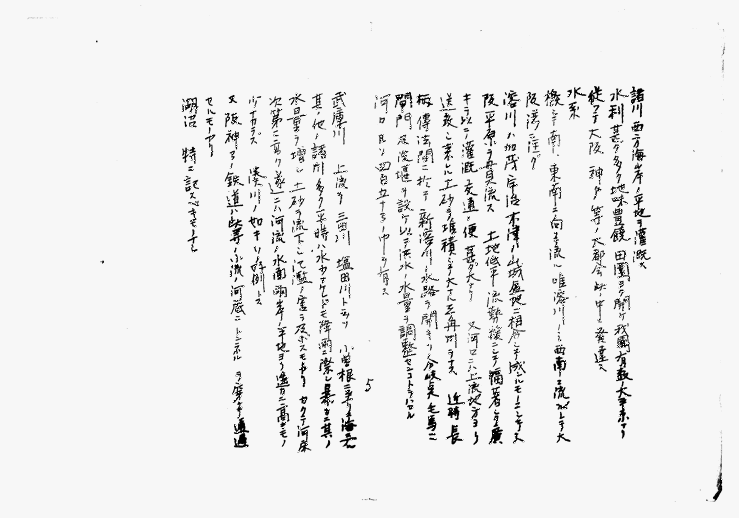 諸川 西方海岸ノ平地ヲ灌漑ス
水利甚ダ多ク地味豊饒 田園ヨク開ケ我國有数大平系ナリ
従ツテ大阪 神戸 等ノ大都会此ノ中ニ発達ス
水系
概シテ南 東南ニ向テ流レ唯淀川ノミ西南ニ流ガレテ大
阪湾ニ注グ
淀川ハ加茂 宇治 木津ハ山城盆地ニ相合シテ成ルモノニシテ大
阪平原ヲ貫流ス 土地低平 流勢緩ニシテ 廣
キヲ以テ灌漑交通ノ便 甚ダ大ナリ 又河口ニハ上流地方ヨリ
送致シ来レル土砂ヲ堆積シテ大ナル三角州ヲナス 近時長
柄 傳法間ニ於テ新淀川ノ水路ヲ開キソノ分岐点毛馬ニ
閘門及洗堰ヲ設ケ以テ洪水ノ水量ヲ調整セシコトヲハカル
河口 四百五十 ノ巾ヲ有ス
武庫川 上流ヲ三田川 塩田川トナリ 小曽根ニ至リ海ニ入ル
其ノ他ノ諸川多ク平時ハ水カナケレドモ降雨ニ際シ暴カニ其ノ
水量ヲ増シ土砂ヲ流下シテ氾濫ノ害ヲ及ボスモノナリ カクテ河床
次第ニ高リ遂ニハ河流ノ水面両岸ノ平地ヨリ遥カニ高キモノ
少ナカラズ 湊川ノ如キソノ好例トス
又阪神間ノ鉄道ハ此等ノ小流ノ河底ニトンネルヲ穿チテ通過
セルモノアリ
湖沼 特ニ記スベキモノナシ
5